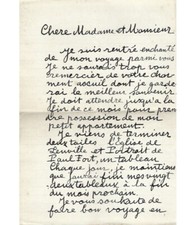 Chere Madame et Monsieur
Je suis rentré enchanté
de mon voyage parmi vous
Je ne saurais trop vous
remercier de votre char
mant acueil dont je garde
rai le meilleur souvenir.
Je doit attendre jusqu'a la
fin de ce mois pour pren
dre possession de mon
petit appartement.
Je viens de terminer
deux toiles l'église de
Deuville et Portrait de
Paul Fort, un tableau
Chaque jour, je maintiens
que j'aurai fini mes vingt
deux tableaux à la fin
du mois prochain.
Je vous souhaite de
faire bon voyage en